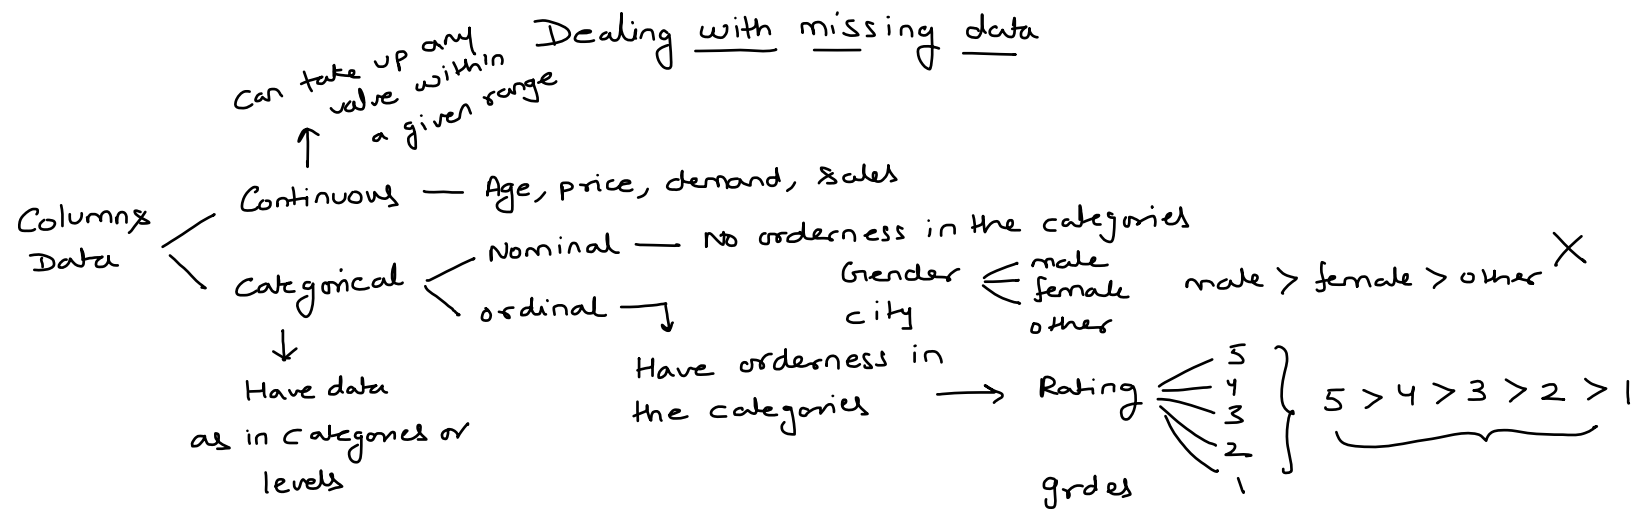 Dealing with missing data
Can take up any
value within
a given range
Continuous — Age, price, demand, sales
Columns
Data
Nominal — No orderness in the categories
Categorical
Gender
male
female
other
male > female > other X
city
ordinal
Have data
as in categories or
levels
Have orderness in
the categories
Rating
5
4
3
2
1
5 > 4 > 3 > 2 > 1
grdes